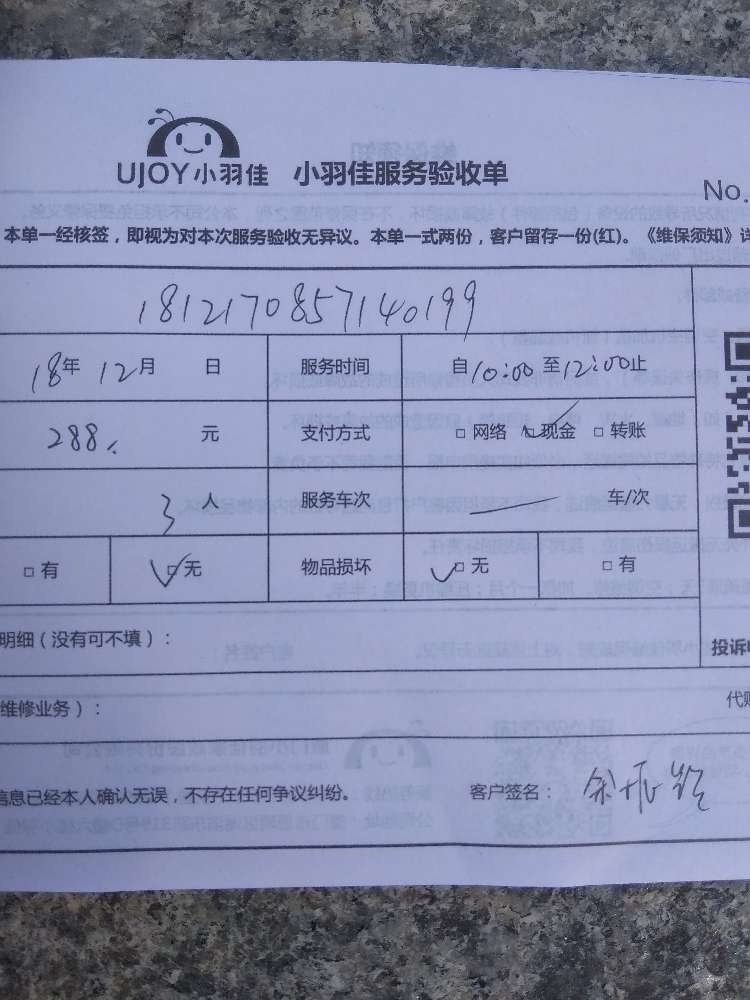 UJOY小羽佳 小羽佳服务验收单
No.
本单一经核签，即视为对本次服务验收无异议。本单一式两份，客户留存一份(红)。《维保须知》详
1812170857140199
18年 12月 日 服务时间 自10:00至12:00止
288. 元 支付方式 □ 网络 □ 现金 □ 转账
3 人 服务车次 — 车/次
□ 有 □ 无 物品损坏 □ 无 □ 有
明细（没有可不填）：
投诉电
维修业务）：
代贝
信息已经本人确认无误，不存在任何争议纠纷。 客户签名：